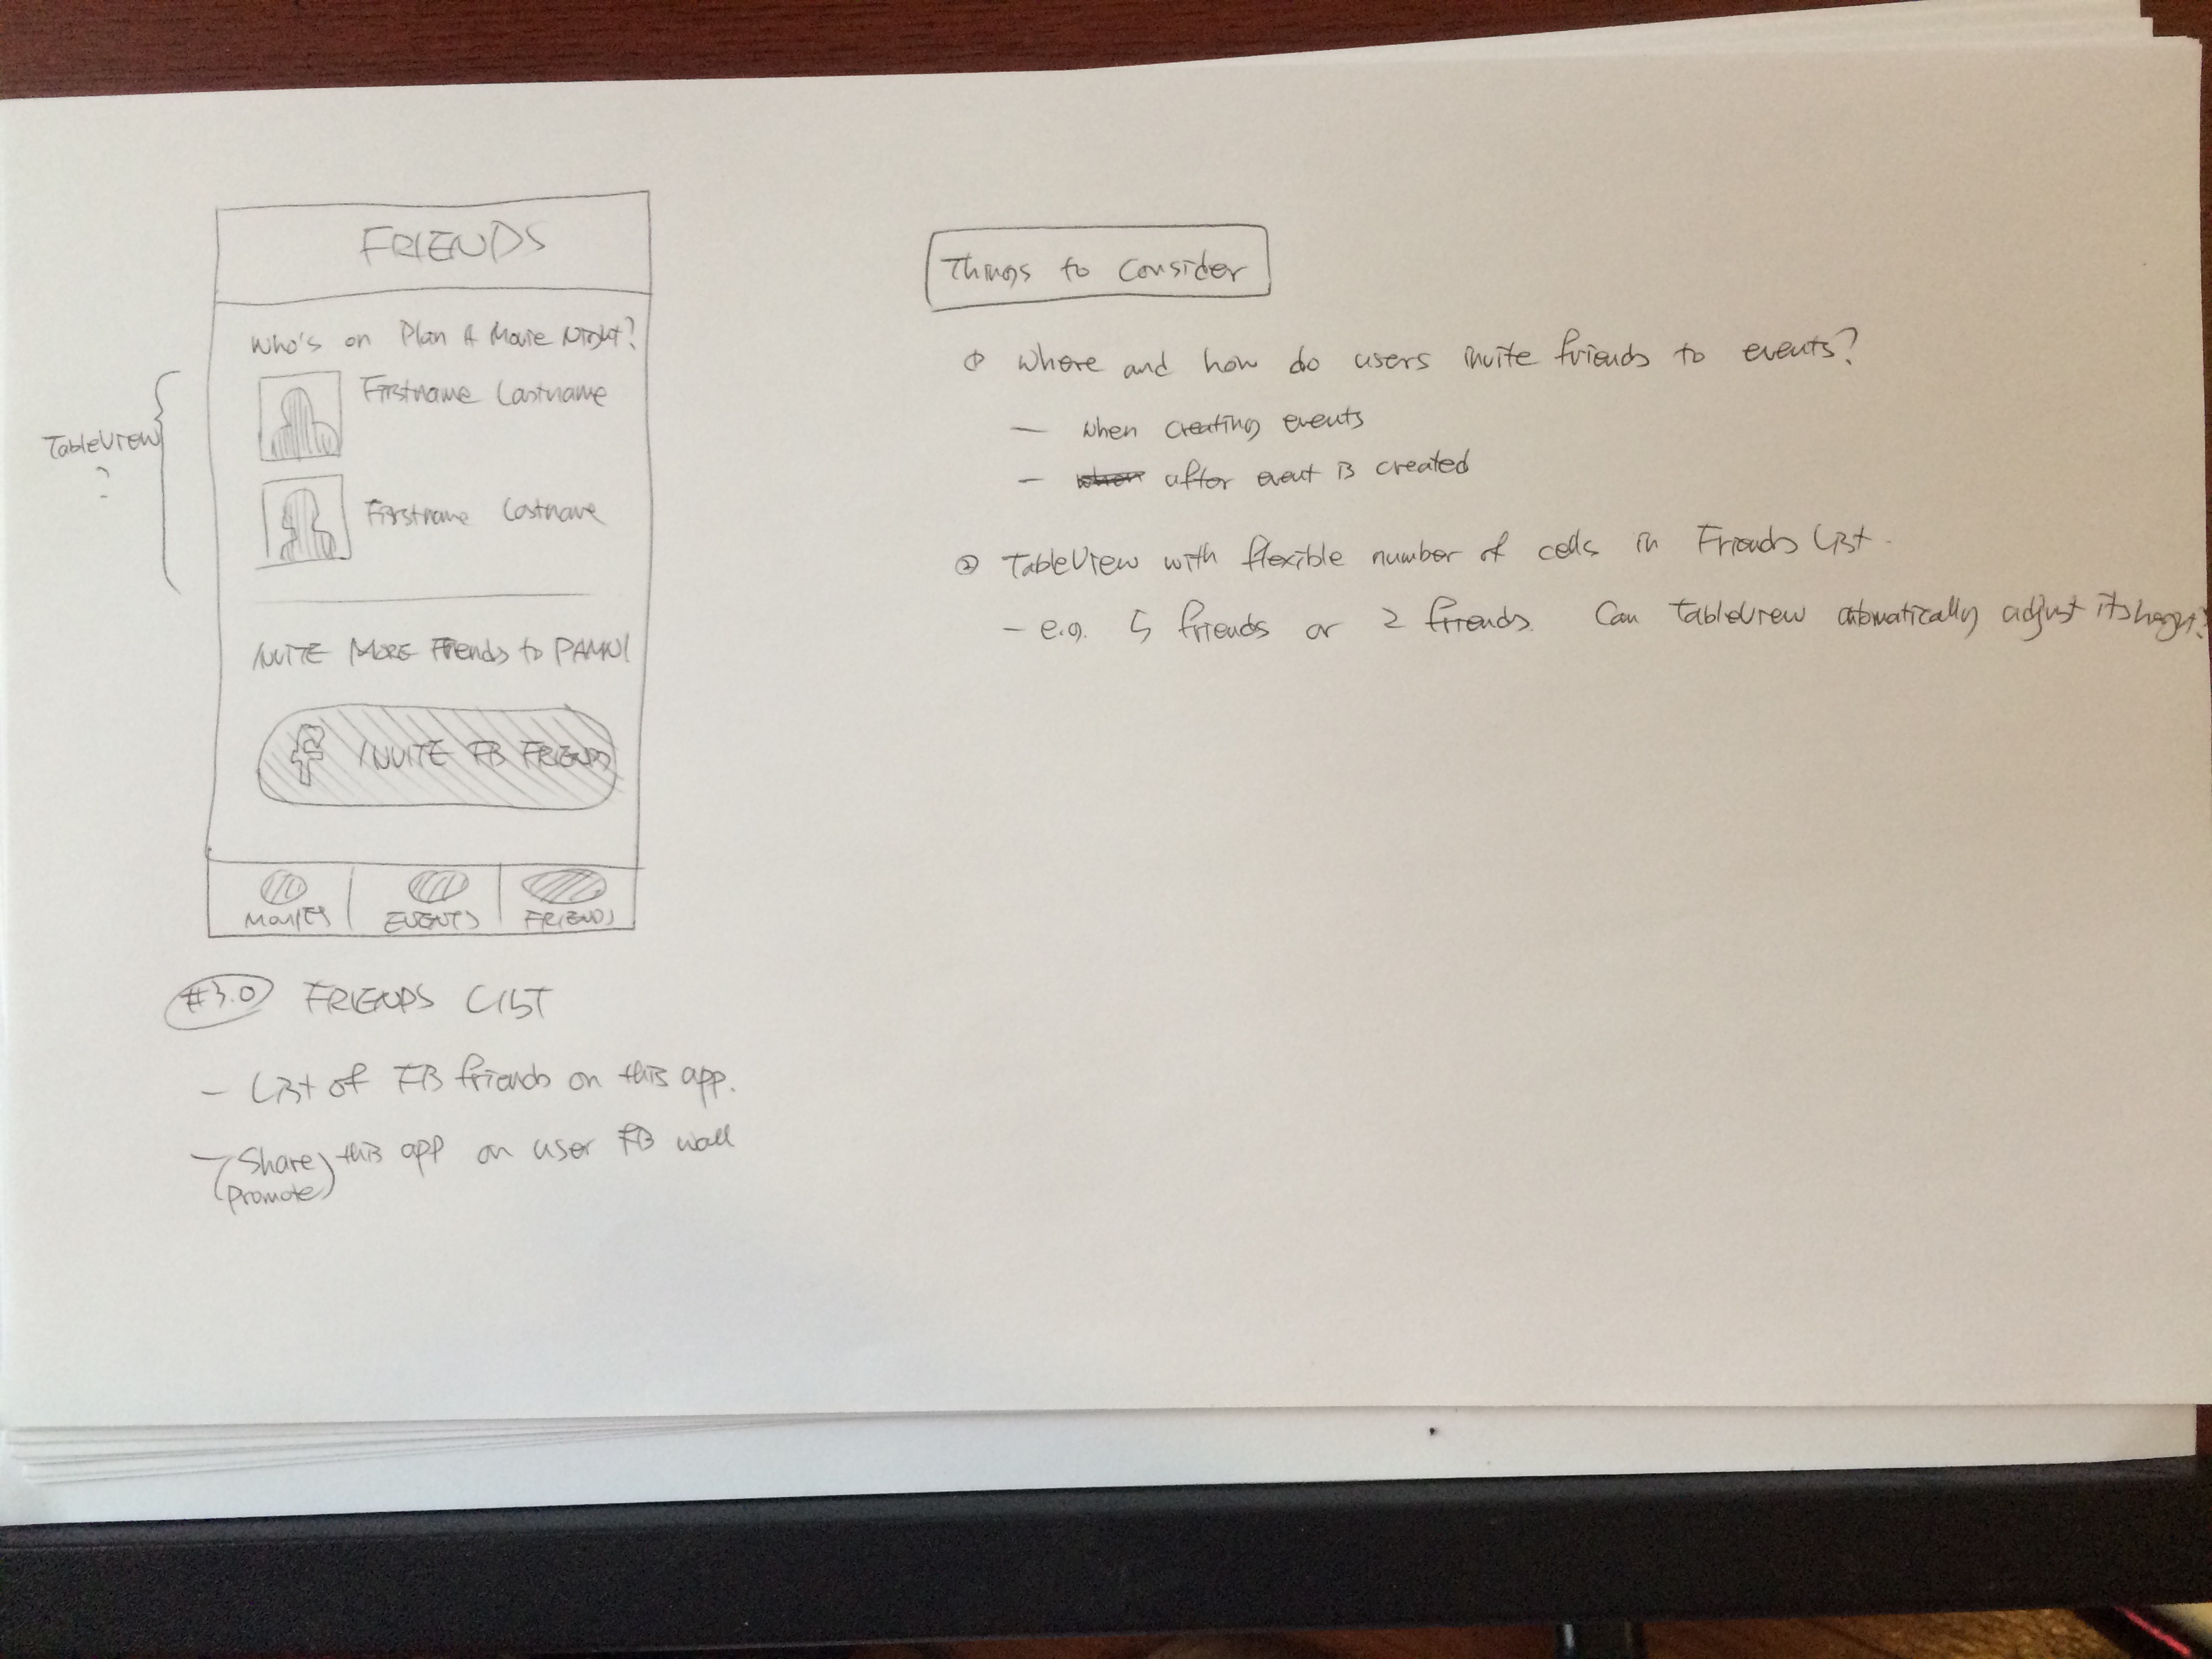 FRIENDS
Who's on Plan A Movie Night?
Firstname Lastname
TableView
?
Firstname Lastname
INVITE MORE Friends to PAMN!
f INVITE FB FRIENDS
MOVIES
EVENTS
FRIENDS
#3.0 FRIENDS LIST
- List of FB friends on this app.
- (Share) this app on user FB wall
(Promote)
Things to Consider
① Where and how do users invite friends to events?
- when creating events
- when after event is created
② TableView with flexible number of cells in Friends List.
- e.g. 5 friends or 2 friends. Can tableview automatically adjust its height?